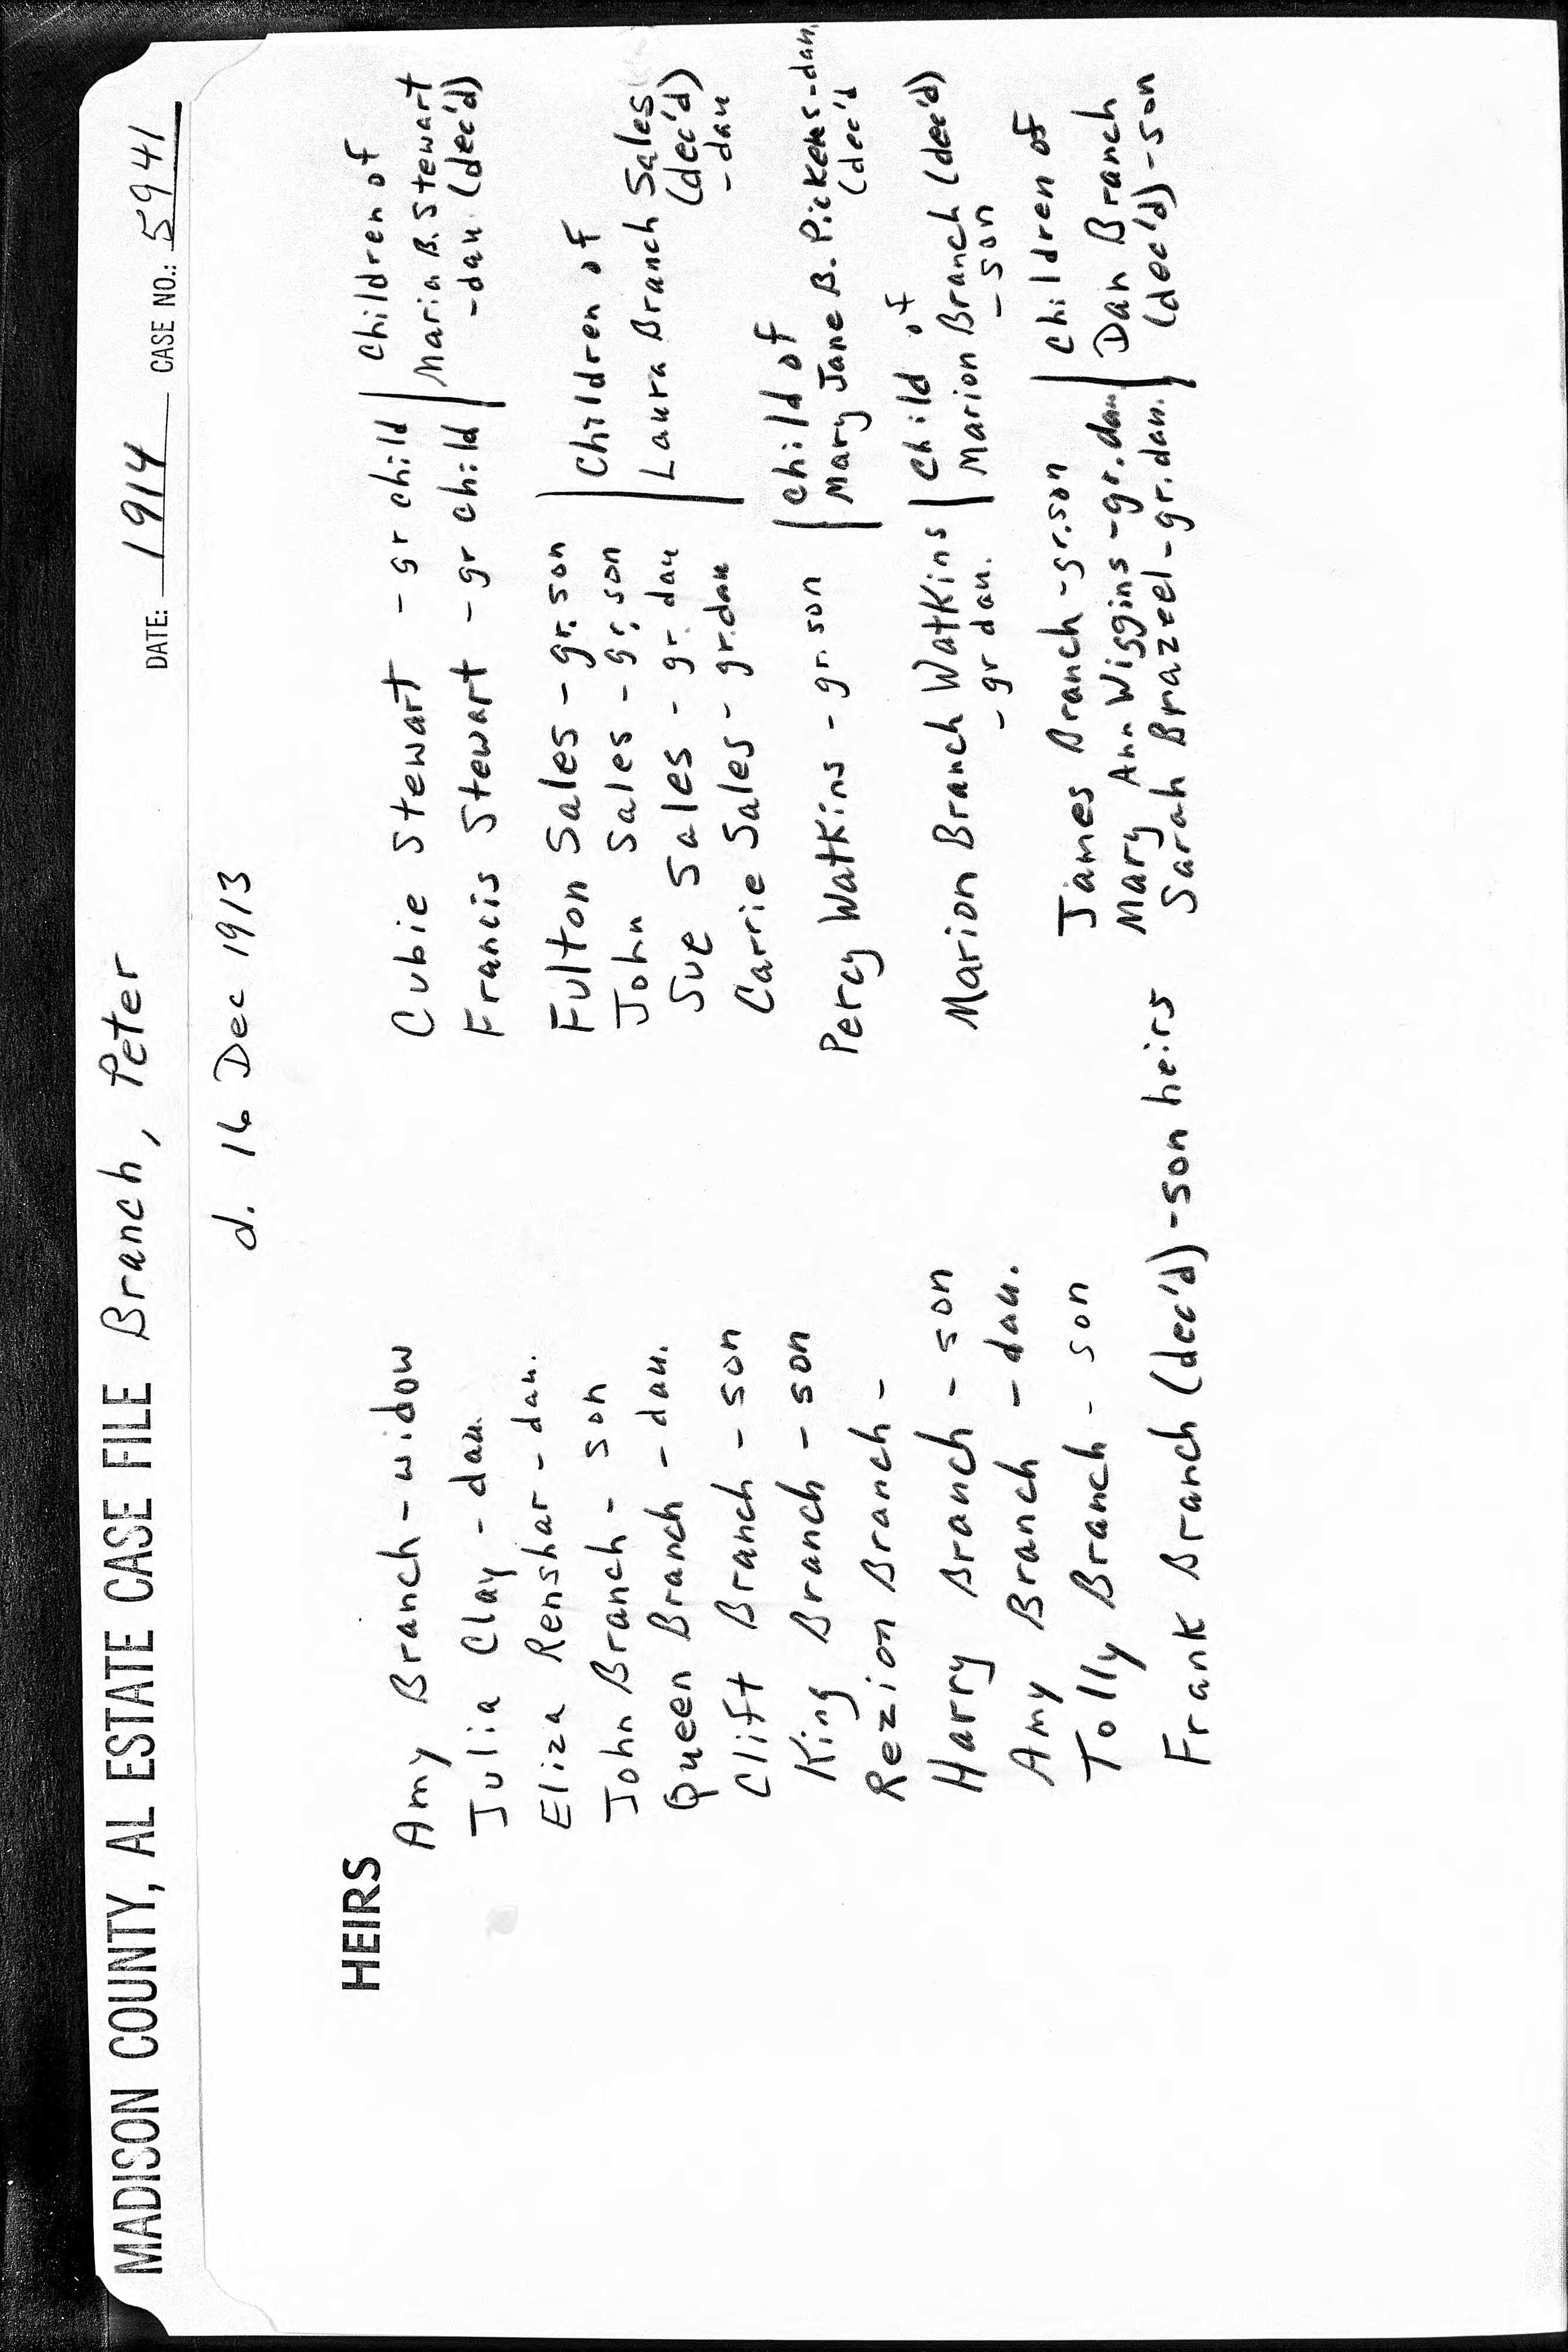 MADISON COUNTY, AL ESTATE CASE FILE Branch, Peter
DATE: 1914 CASE NO.: 5941
d. 16 Dec 1913
HEIRS
Amy Branch - widow
Julia Clay - dau.
Eliza Renshar - dau.
John Branch - son
Queen Branch - dau.
Clift Branch - son
King Branch - son
Rezion Branch -
Harry Branch - son
Amy Branch - dau.
Tolly Branch - son
Frank Branch (dec'd) - son heirs
Cubie Stewart - gr child
Francis Stewart - gr child
Children of
Maria B. Stewart
- dau. (dec'd)
Fulton Sales - gr. son
John Sales - gr. son
Sue Sales - gr. dau
Carrie Sales - gr. dau
Children of
Laura Branch Sales
(dec'd)
- dau
Percy Watkins - gr. son
Child of
Mary Jane B. Pickens - dau.
(dec'd
Marion Branch Watkins
- gr dau.
Child of
Marion Branch (dec'd)
- son
James Branch - gr. son
Mary Ann Wiggins - gr. dau
Sarah Brazeel - gr. dau.
Children of
Dan Branch
(dec'd) - son